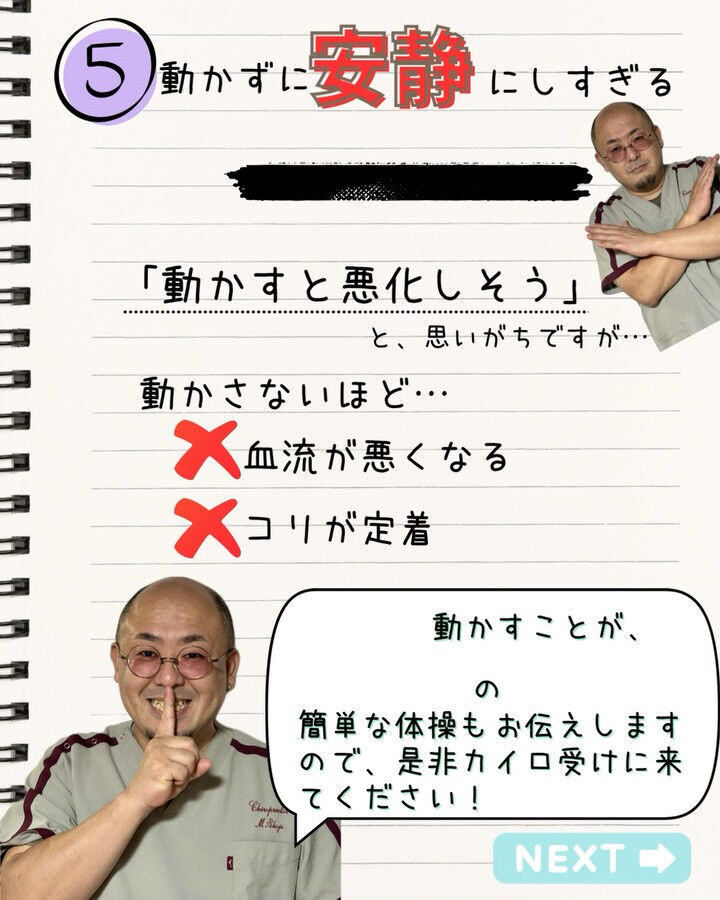 5 動かずに安静にしすぎる
「動かすと悪化しそう」
と、思いがちですが…
動かさないほど…
血流が悪くなる
コリが定着
動かすことが、
の
簡単な体操もお伝えします
ので、是非カイロ受けに来
てください！
NEXT